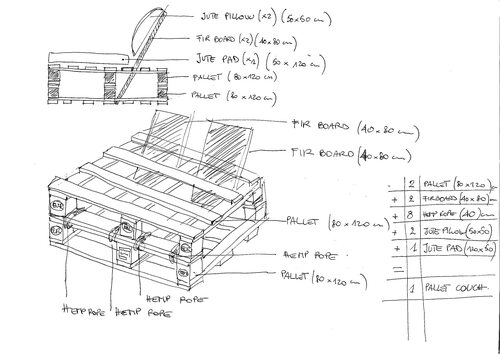 JUTE PILLOW (x2) (50x50 cm)
FIR BOARD (x2) (40x80 cm)
JUTE PAD (x1) (50 x 120 cm)
PALLET (80x120 cm)
PALLET (80x120 cm)
FIR BOARD (40x80 cm)
FIR BOARD (40x80 cm)
PALLET (80x120 cm)
HEMP ROPE
PALLET (80x120 cm)
HEMP ROPE
HEMP ROPE
HEMP ROPE
2 PALLET (80x120)
+ 2 FIRBOARD (40x80)
+ 8 HEMP ROPE (40) cm
+ 2 JUTE PILLOW (50x50)
+ 1 JUTE PAD (120x50)
=
1 PALLET COUCH